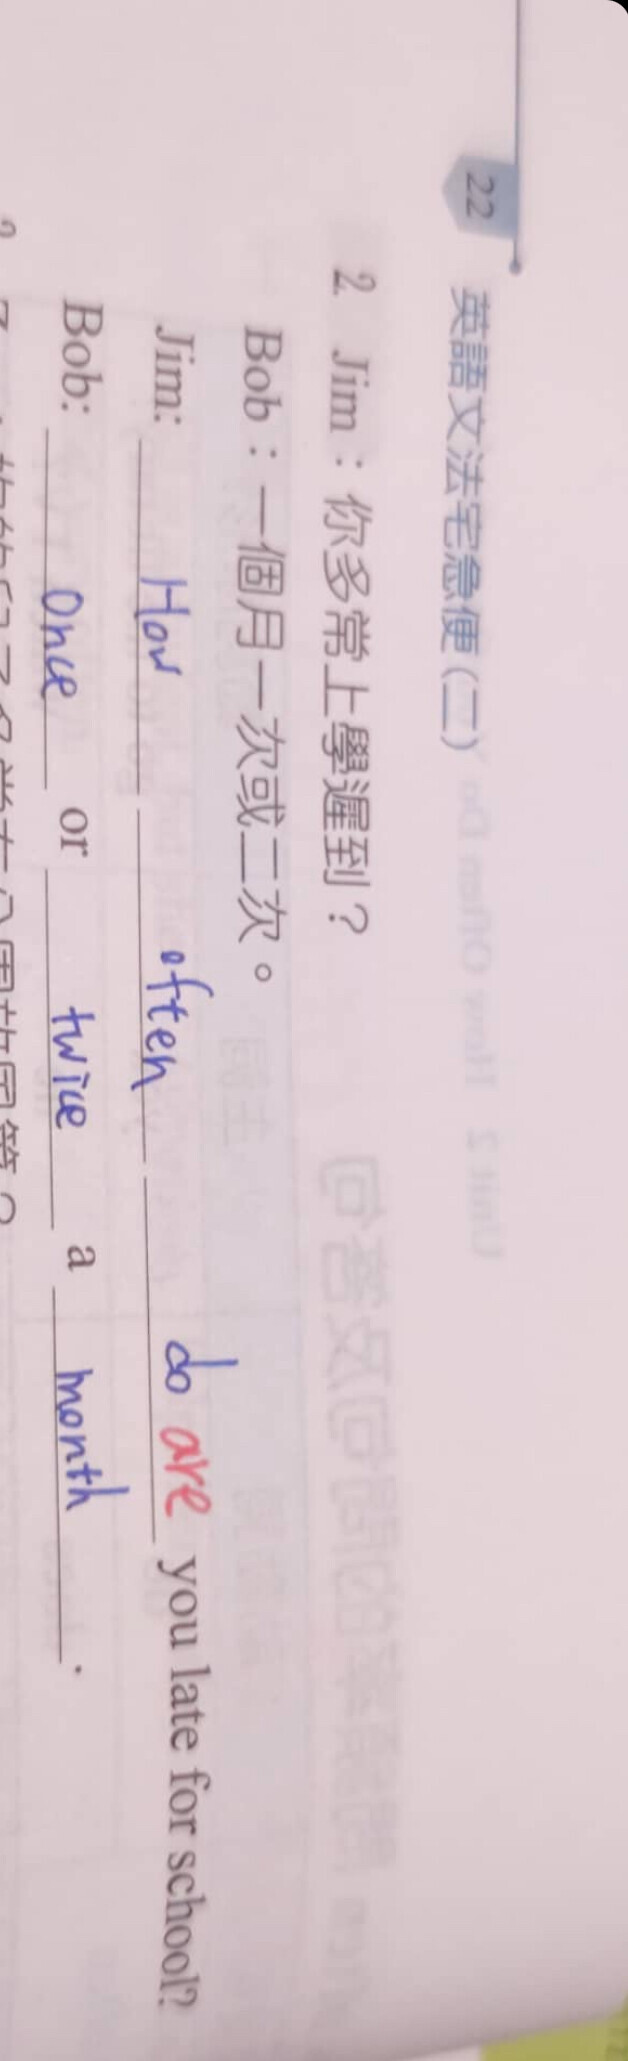 22 英語文法宅急便(二)
2 Jim：你多常上學遲到？
Bob：一個月一次或二次。
Jim: How often do are you late for school?
Bob: Once or twice a month.